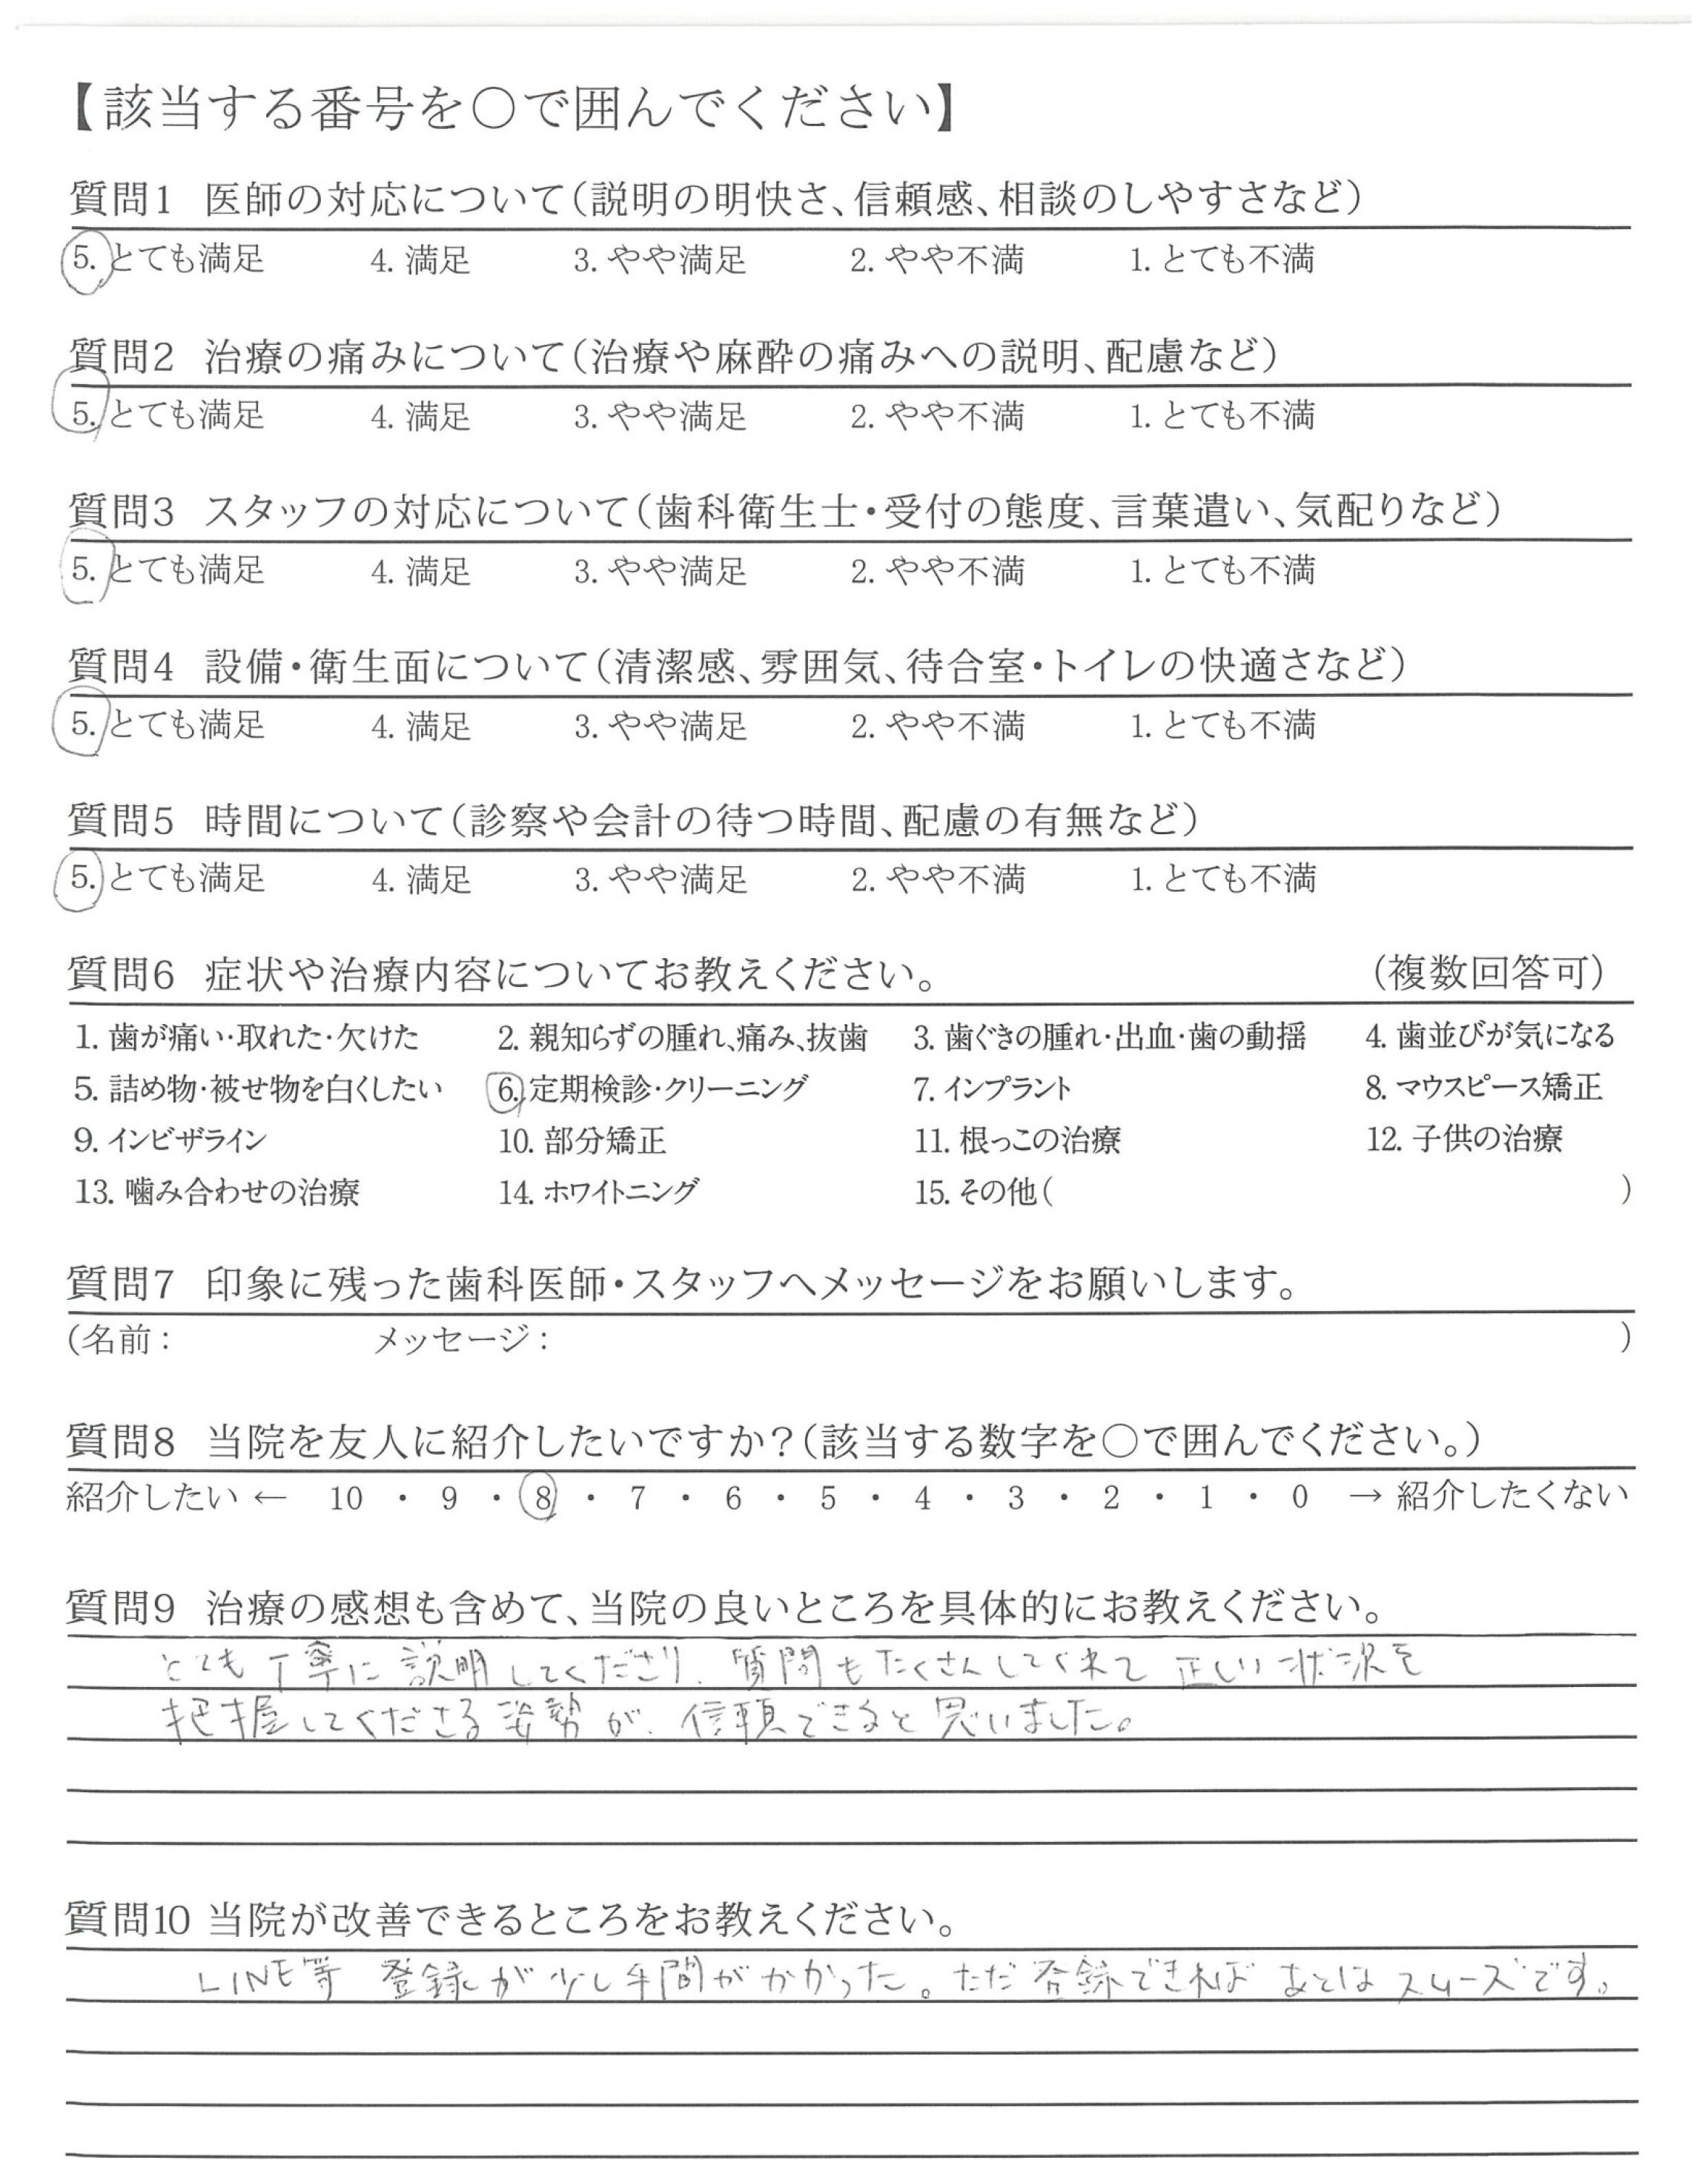 【該当する番号を〇で囲んでください】
質問1 医師の対応について(説明の明快さ、信頼感、相談のしやすさなど)
5. とても満足 4. 満足 3. やや満足 2. やや不満 1. とても不満
質問2 治療の痛みについて(治療や麻酔の痛みへの説明、配慮など)
5. とても満足 4. 満足 3. やや満足 2. やや不満 1. とても不満
質問3 スタッフの対応について(歯科衛生士・受付の態度、言葉遣い、気配りなど)
5. とても満足 4. 満足 3. やや満足 2. やや不満 1. とても不満
質問4 設備・衛生面について(清潔感、雰囲気、待合室・トイレの快適さなど)
5. とても満足 4. 満足 3. やや満足 2. やや不満 1. とても不満
質問5 時間について(診察や会計の待つ時間、配慮の有無など)
5. とても満足 4. 満足 3. やや満足 2. やや不満 1. とても不満
質問6 症状や治療内容についてお教えください。 (複数回答可)
1. 歯が痛い・取れた・欠けた 2. 親知らずの腫れ、痛み、抜歯 3. 歯ぐきの腫れ・出血・歯の動揺 4. 歯並びが気になる
5. 詰め物・被せ物を白くしたい 6. 定期検診・クリーニング 7. インプラント 8. マウスピース矯正
9. インビザライン 10. 部分矯正 11. 根っこの治療 12. 子供の治療
13. 噛み合わせの治療 14. ホワイトニング 15. その他( )
質問7 印象に残った歯科医師・スタッフへメッセージをお願いします。
(名前: メッセージ: )
質問8 当院を友人に紹介したいですか?(該当する数字を〇で囲んでください。)
紹介したい ← 10 ・ 9 ・ 8 ・ 7 ・ 6 ・ 5 ・ 4 ・ 3 ・ 2 ・ 1 ・ 0 → 紹介したくない
質問9 治療の感想も含めて、当院の良いところを具体的にお教えください。
とても丁寧に説明してくださり、質問もたくさんしてくれて正しい状況を
把握してくださる姿勢が、信頼できると思いました。
質問10 当院が改善できるところをお教えください。
LINE等 登録が少し手間がかかった。ただ登録できればあとはスムーズです。